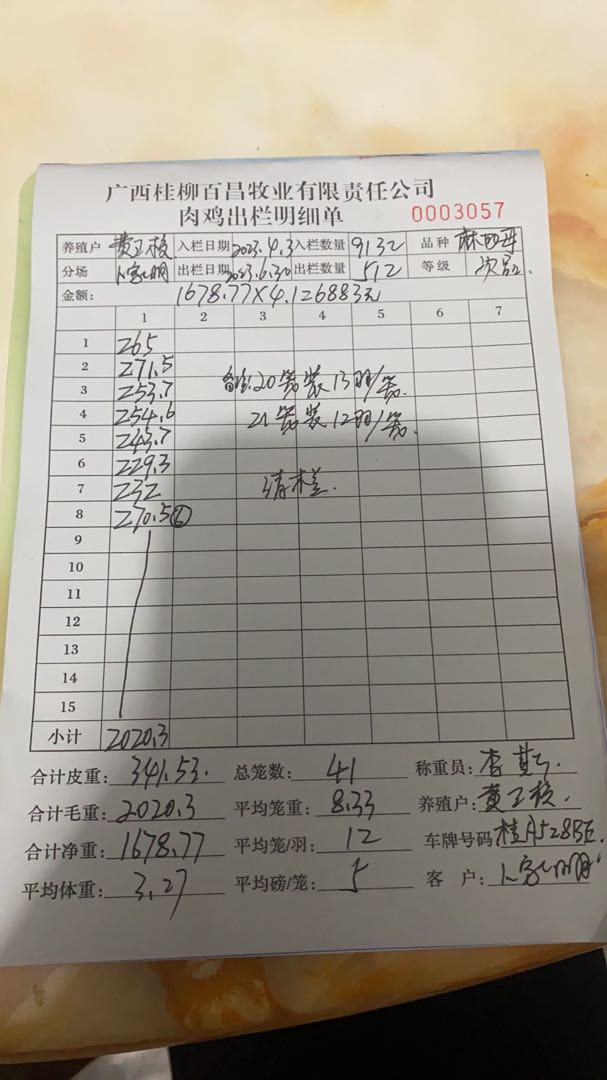 广西桂柳百昌牧业有限责任公司
肉鸡出栏明细单 0003057
养殖户 黄卫核 入栏日期 2023.4.3 入栏数量 9132 品种 麻
分场 出栏日期 2023.6.30 出栏数量 512 等级 次品.
金额: 1678.77×4.1=6883元
1 2 3 4 5 6 7
1 265
2 271.5
3 253.7 20笼装13羽/笼.
4 254.6 21笼装12羽/笼.
5 243.7
6 229.3
7 232 清栏.
8 270.5⑥
9
10
11
12
13
14
15
小计 2020.3
合计皮重: 341.53. 总笼数: 41 称重员: 李
合计毛重: 2020.3 平均笼重: 8.33 养殖户: 黄卫核.
合计净重: 1678.77 平均笼/羽: 12 车牌号码 桂
平均体重: 3.27 平均磅/笼: 5 客 户: